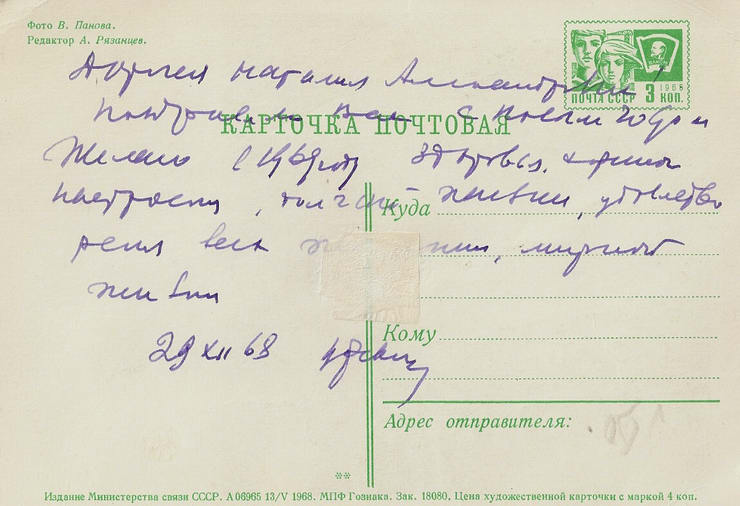 Фото В. Панова.
Редактор А. Рязанцев.
1966
ПОЧТА СССР 3 КОП.
Дорогая Наталия Александровна!
Поздравляю Вас с Новым Годом
КАРТОЧКА ПОЧТОВАЯ
Желаю в 1969 году здоровья, хорошего
настроения, жизни, удовлетво
Куда
рения всех, мирной
жизни
Кому
29 XII 68
Адрес отправителя:
**
Издание Министерства связи СССР. А 06965 13/V 1968. МПФ Гознака. Зак. 18080. Цена художественной карточки с маркой 4 коп.